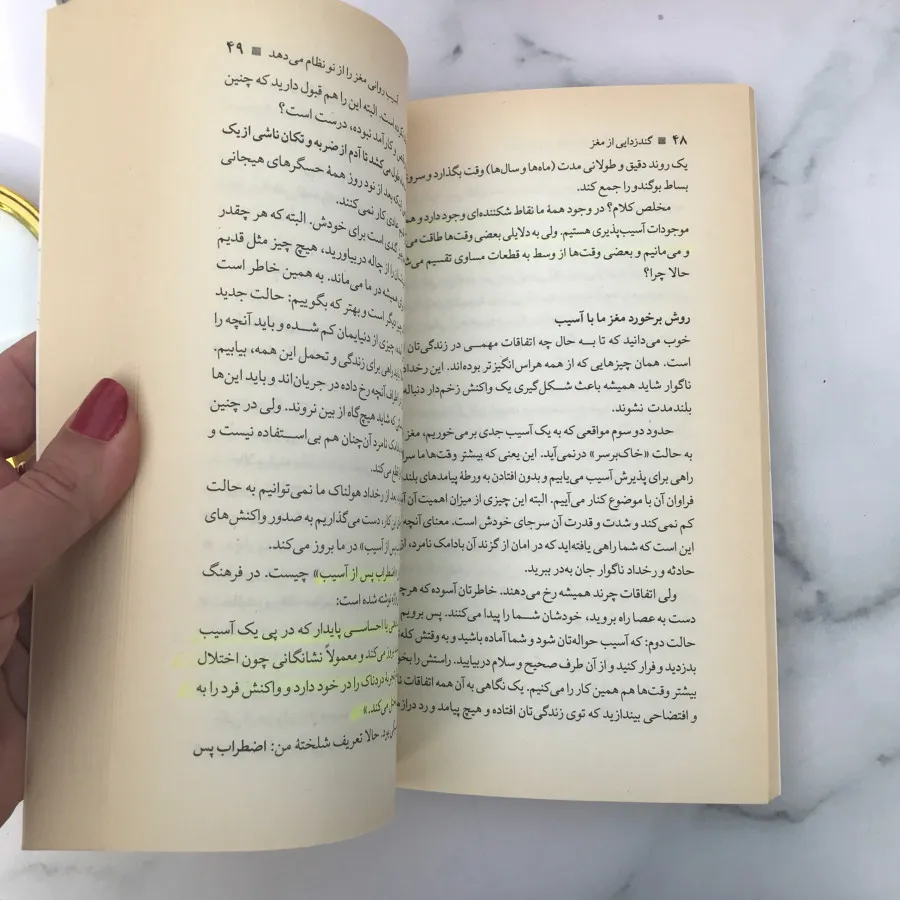 ۴۸ ■ گندزدایی از مغز
یک روند دقیق و طولانی مدت (ماه‌ها و سال‌ها) وقت بگذارد و سرو
بساط بوگندو را جمع کند.
مخلص کلام؟ در وجود همهٔ ما نقاط شکننده‌ای وجود دارد و همه
موجودات آسیب‌پذیری هستیم. ولی به دلایلی بعضی وقت‌ها طاقت می
و می‌مانیم و بعضی وقت‌ها از وسط به قطعات مساوی تقسیم می‌ش
حالا چرا؟
روش برخورد مغز ما با آسیب
خوب می‌دانید که تا به حال چه اتفاقات مهمی در زندگی‌تان
است. همان چیزهایی که از همه هراس‌انگیزتر بوده‌اند. این رخداد
ناگوار شاید همیشه باعث شکل‌گیری یک واکنش زخم‌دار دنباله
بلندمدت نشوند.
حدود دو سوم مواقعی که به یک آسیب جدی برمی‌خوریم، مغز
به حالت «خاک‌برسر» درنمی‌آید. این یعنی که بیشتر وقت‌ها ما سر
راهی برای پذیرش آسیب می‌یابیم و بدون افتادن به ورطهٔ پیامدهای بلند
فراوان آن با موضوع کنار می‌آییم. البته این چیزی از میزان اهمیت آن آ
کم نمی‌کند و شدت و قدرت آن سرجای خودش است. معنای آنچه
این است که شما راهی یافته‌اید که در امان از گزند آن بادامک نامرد، از
حادثه و رخداد ناگوار جان به‌در ببرید.
ولی اتفاقات چرند همیشه رخ می‌دهند. خاطرتان آسوده که هرچه
دست به عصا راه بروید، خودشان شما را پیدا می‌کنند. پس برویم
حالت دوم: که آسیب حواله‌تان شود و شما آماده باشید و به وقتش کله
بدزدید و فرار کنید و از آن طرف صحیح و سلام دربیایید. راستش را بخو
بیشتر وقت‌ها هم همین کار را می‌کنیم. یک نگاهی به آن همه اتفاقات نا
و افتضاحی بیندازید که توی زندگی‌تان افتاده و هیچ پیامد و رد دراز
آسیب روانی مغز را از نو نظام می‌دهد ■ ۴۹
کرده است. البته این را هم قبول دارید که چنین
و کارآمد نبوده، درست است؟
طول می‌کشد تا آدم از ضربه و تکان ناشی از یک
بعد از نود روز همهٔ حسگرهای هیجانی
عادی کار نمی‌کنند.
گندی است برای خودش. البته که هر چقدر
را از چاله دربیاورید، هیچ چیز مثل قدیم
همیشه در ما می‌ماند. به همین خاطر است
دیگر است و بهتر که بگوییم: حالت جدید
چیزی از دنیایمان کم شده و باید آنچه را
راهی برای زندگی و تحمل این همه، بیابیم.
آنچه رخ داده در جریان‌اند و باید این‌ها
که شاید هیچ‌گاه از بین نروند. ولی در چنین
نامرد آن‌چنان هم بی‌استفاده نیست و
می‌کند.
بعد از رخداد هولناک ما نمی‌توانیم به حالت
این کار، دست می‌گذاریم به صدور واکنش‌های
پس از آسیب» در ما بروز می‌کند.
«اضطراب پس از آسیب» چیست. در فرهنگ
نوشته شده است:
یا احساسی پایدار که در پی یک آسیب
بروز می‌کند و معمولاً نشانگانی چون اختلال
دردناک را در خود دارد و واکنش فرد را به
می‌کند.»
بود. حالا تعریف شلختهٔ من: اضطراب پس